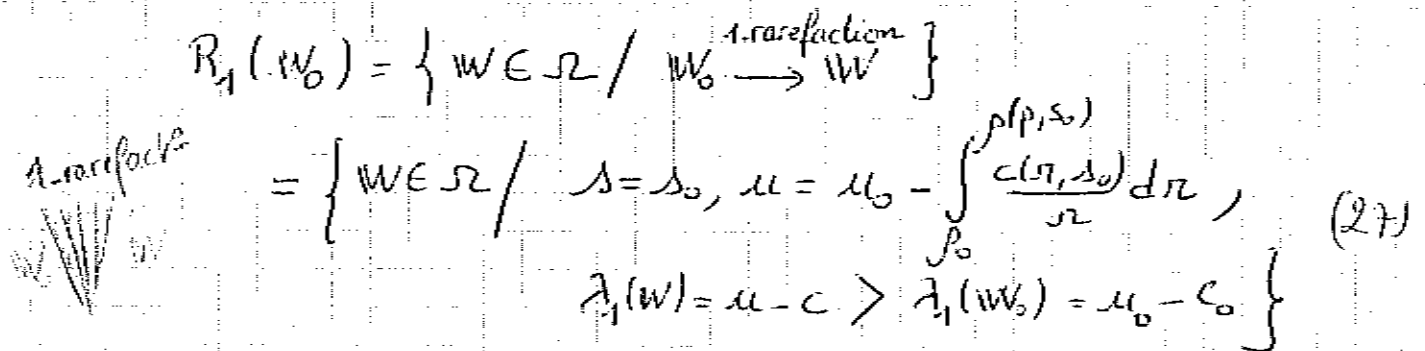 R₁(W₀) = { W ∈ Ω / W₀ →^{1.rarefaction} W }
1-rarefact°
W W
= { W ∈ Ω / s = s₀, u = u₀ - ∫_{ρ₀}^{ρ(p,s₀)} c(r,s₀)/r dr ,
(27)
λ₁(W) = u - c > λ₁(W₀) = u₀ - c₀ }